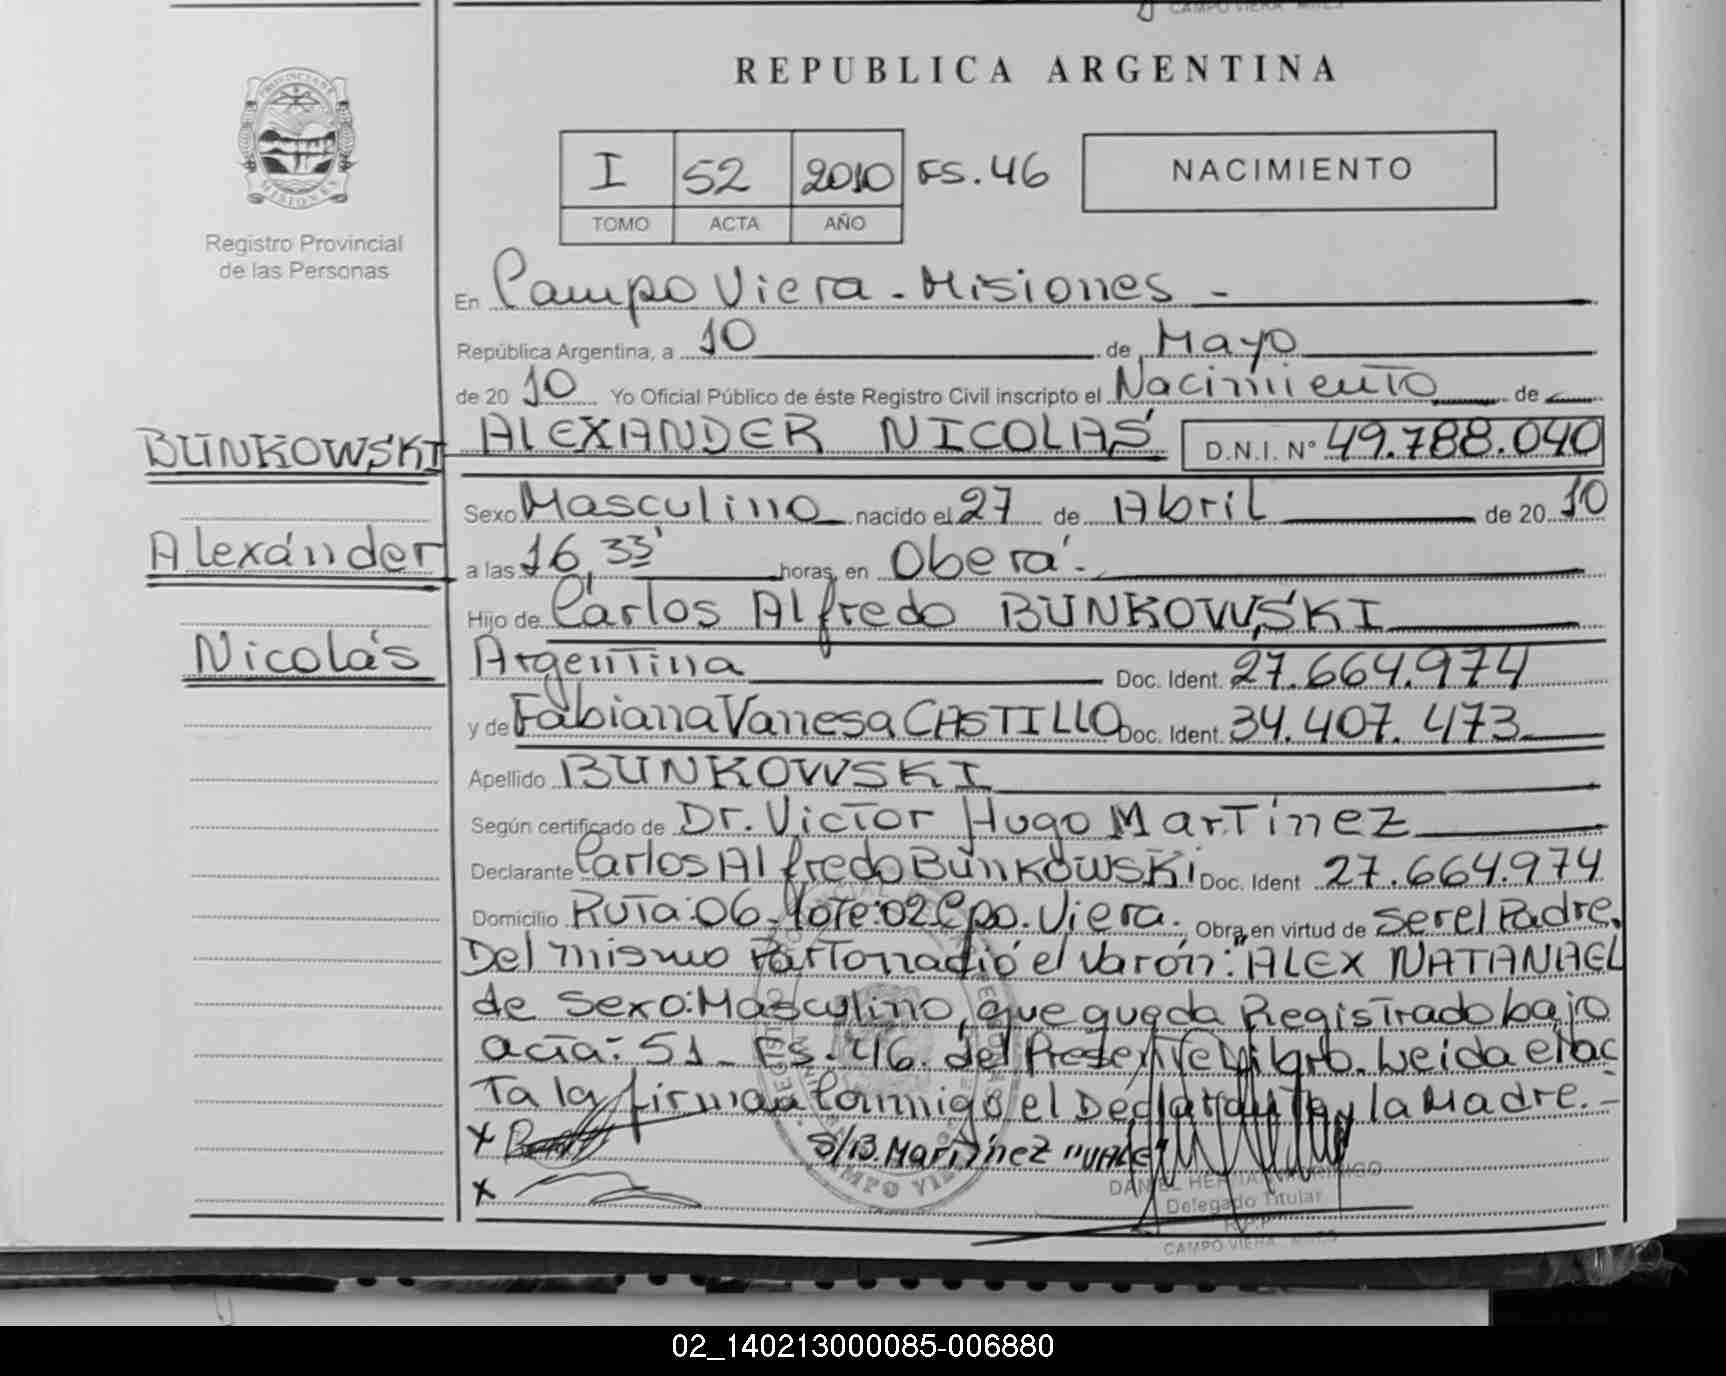 CAMPO VIERA
REPUBLICA ARGENTINA
PROVINCIA DE
MISIONES
Registro Provincial
de las Personas
I 52 2010 FS. 46
TOMO ACTA AÑO
NACIMIENTO
En Campo Viera - Misiones -
República Argentina, a 10 de Mayo
de 20 10 Yo Oficial Público de éste Registro Civil inscripto el Nacimiento de
BUNKOWSKI ALEXANDER NICOLÁS D.N.I. N° 49.788.040
Sexo Masculino nacido el 27 de Abril de 20 10
Alexánder
a las 16,33' horas, en Oberá.
Hijo de Carlos Alfredo BUNKOWSKI
Nicolás
Argentina Doc. Ident. 27.664.974
y de Fabiana Vanesa CASTILLO Doc. Ident. 34.407.473
Apellido BUNKOWSKI
Según certificado de Dr. Victor Hugo Martínez
Declarante Carlos Alfredo Bunkowski Doc. Ident 27.664.974
Domicilio Ruta:06-Lote:02 Cpo. Viera. Obra en virtud de Ser el Padre.
Del mismo Parto nadió el varón: "ALEX NATANAEL
de Sexo: Masculino, que queda Registrado bajo
acta: 51 - Fs. 46. del Presente Libro. Leida el ac
Ta la firman Conmigo el Declarante y la Madre. -
x
S/B. Martínez "VALE"
x
Delegado Titular
R.P.P.
CAMPO VIERA - MNES
02_140213000085-006880